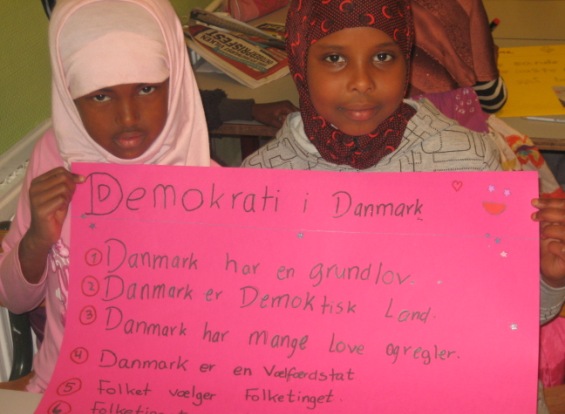 Demokrati i Danmark
① Danmark har en grundlov.
② Danmark er Demoktisk Land.
③ Danmark har mange love og regler.
④ Danmark er en Vælfærdstat
⑤ Folket vælger Folketinget.
⑥